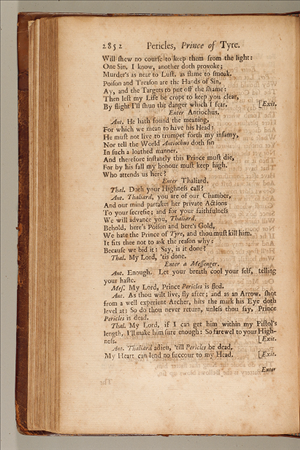 2852 Pericles, Prince of Tyre.
Will shew no course to keep them from the light:
One Sin, I know, another doth provoke;
Murder's as near to Lust, as flame to smoak.
Poison and Treason are the Hands of Sin,
Ay, and the Targets to put off the shame:
Then lest my Life be cropt to keep you clear,
By flight I'll shun the danger which I fear. [Exit.
Enter Antiochus.
Ant. He hath found the meaning,
For which we mean to have his Head:
He must not live to trumpet forth my infamy,
Nor tell the World Antiochus doth sin
In such a loathed manner.
And therefore instantly this Prince must die,
For by his fall my honour must keep high.
Who attends us here?
Enter Thaliard.
Thal. Doth your Highness call?
Ant. Thaliard, you are of our Chamber,
And our mind partakes her private Actions
To your secresie; and for your faithfulness
We will advance you, Thaliard.
Behold, here's Poison and here's Gold,
We hate the Prince of Tyre, and thou must kill him.
It fits thee not to ask the reason why:
Because we bid it: Say, is it done?
Thal. My Lord, 'tis done.
Enter a Messenger.
Ant. Enough. Let your breath cool your self, telling
your haste.
Mes. My Lord, Prince Pericles is fled.
Ant. As thou wilt live, fly after; and as an Arrow, shot
from a well experient Archer, hits the mark his Eye doth
level at: So do thou never return, unless thou say, Prince
Pericles is dead.
Thal. My Lord, if I can get him within my Pistol's
length, I'll make him sure enough: So farewel to your High-
ness. [Exit.
Ant. Thaliard adieu, 'till Pericles be dead,
My Heart can lend no succour to my Head. [Exit.
Enter